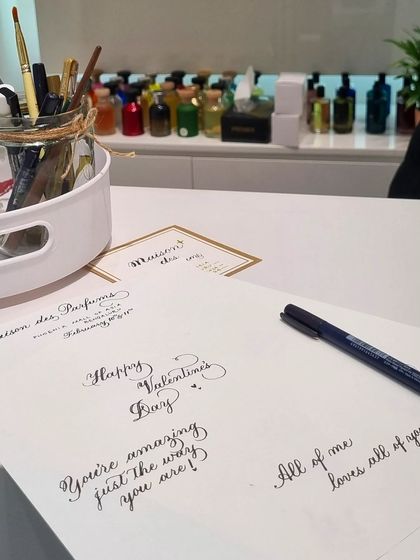 Maison
des
Maison des Parfums
Happy
Valentine's
Day
You're amazing
just the way
you are!
All of me
loves all of you